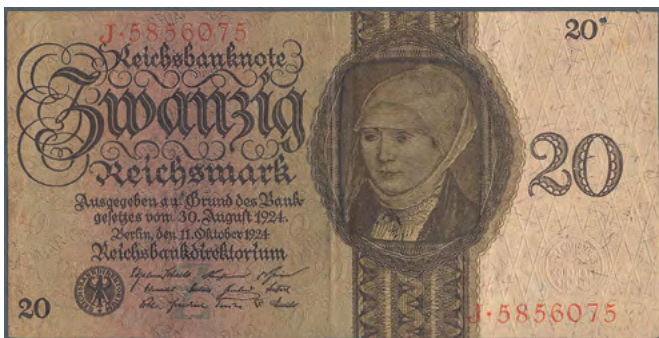 J·5856075
20
Reichsbanknote
Zwanzig
Reichsmark
20
Ausgegeben auf Grund des Bank-
gesetzes vom 30. August 1924.
Berlin, den 11. Oktober 1924
Reichsbankdirektorium
20
J·5856075